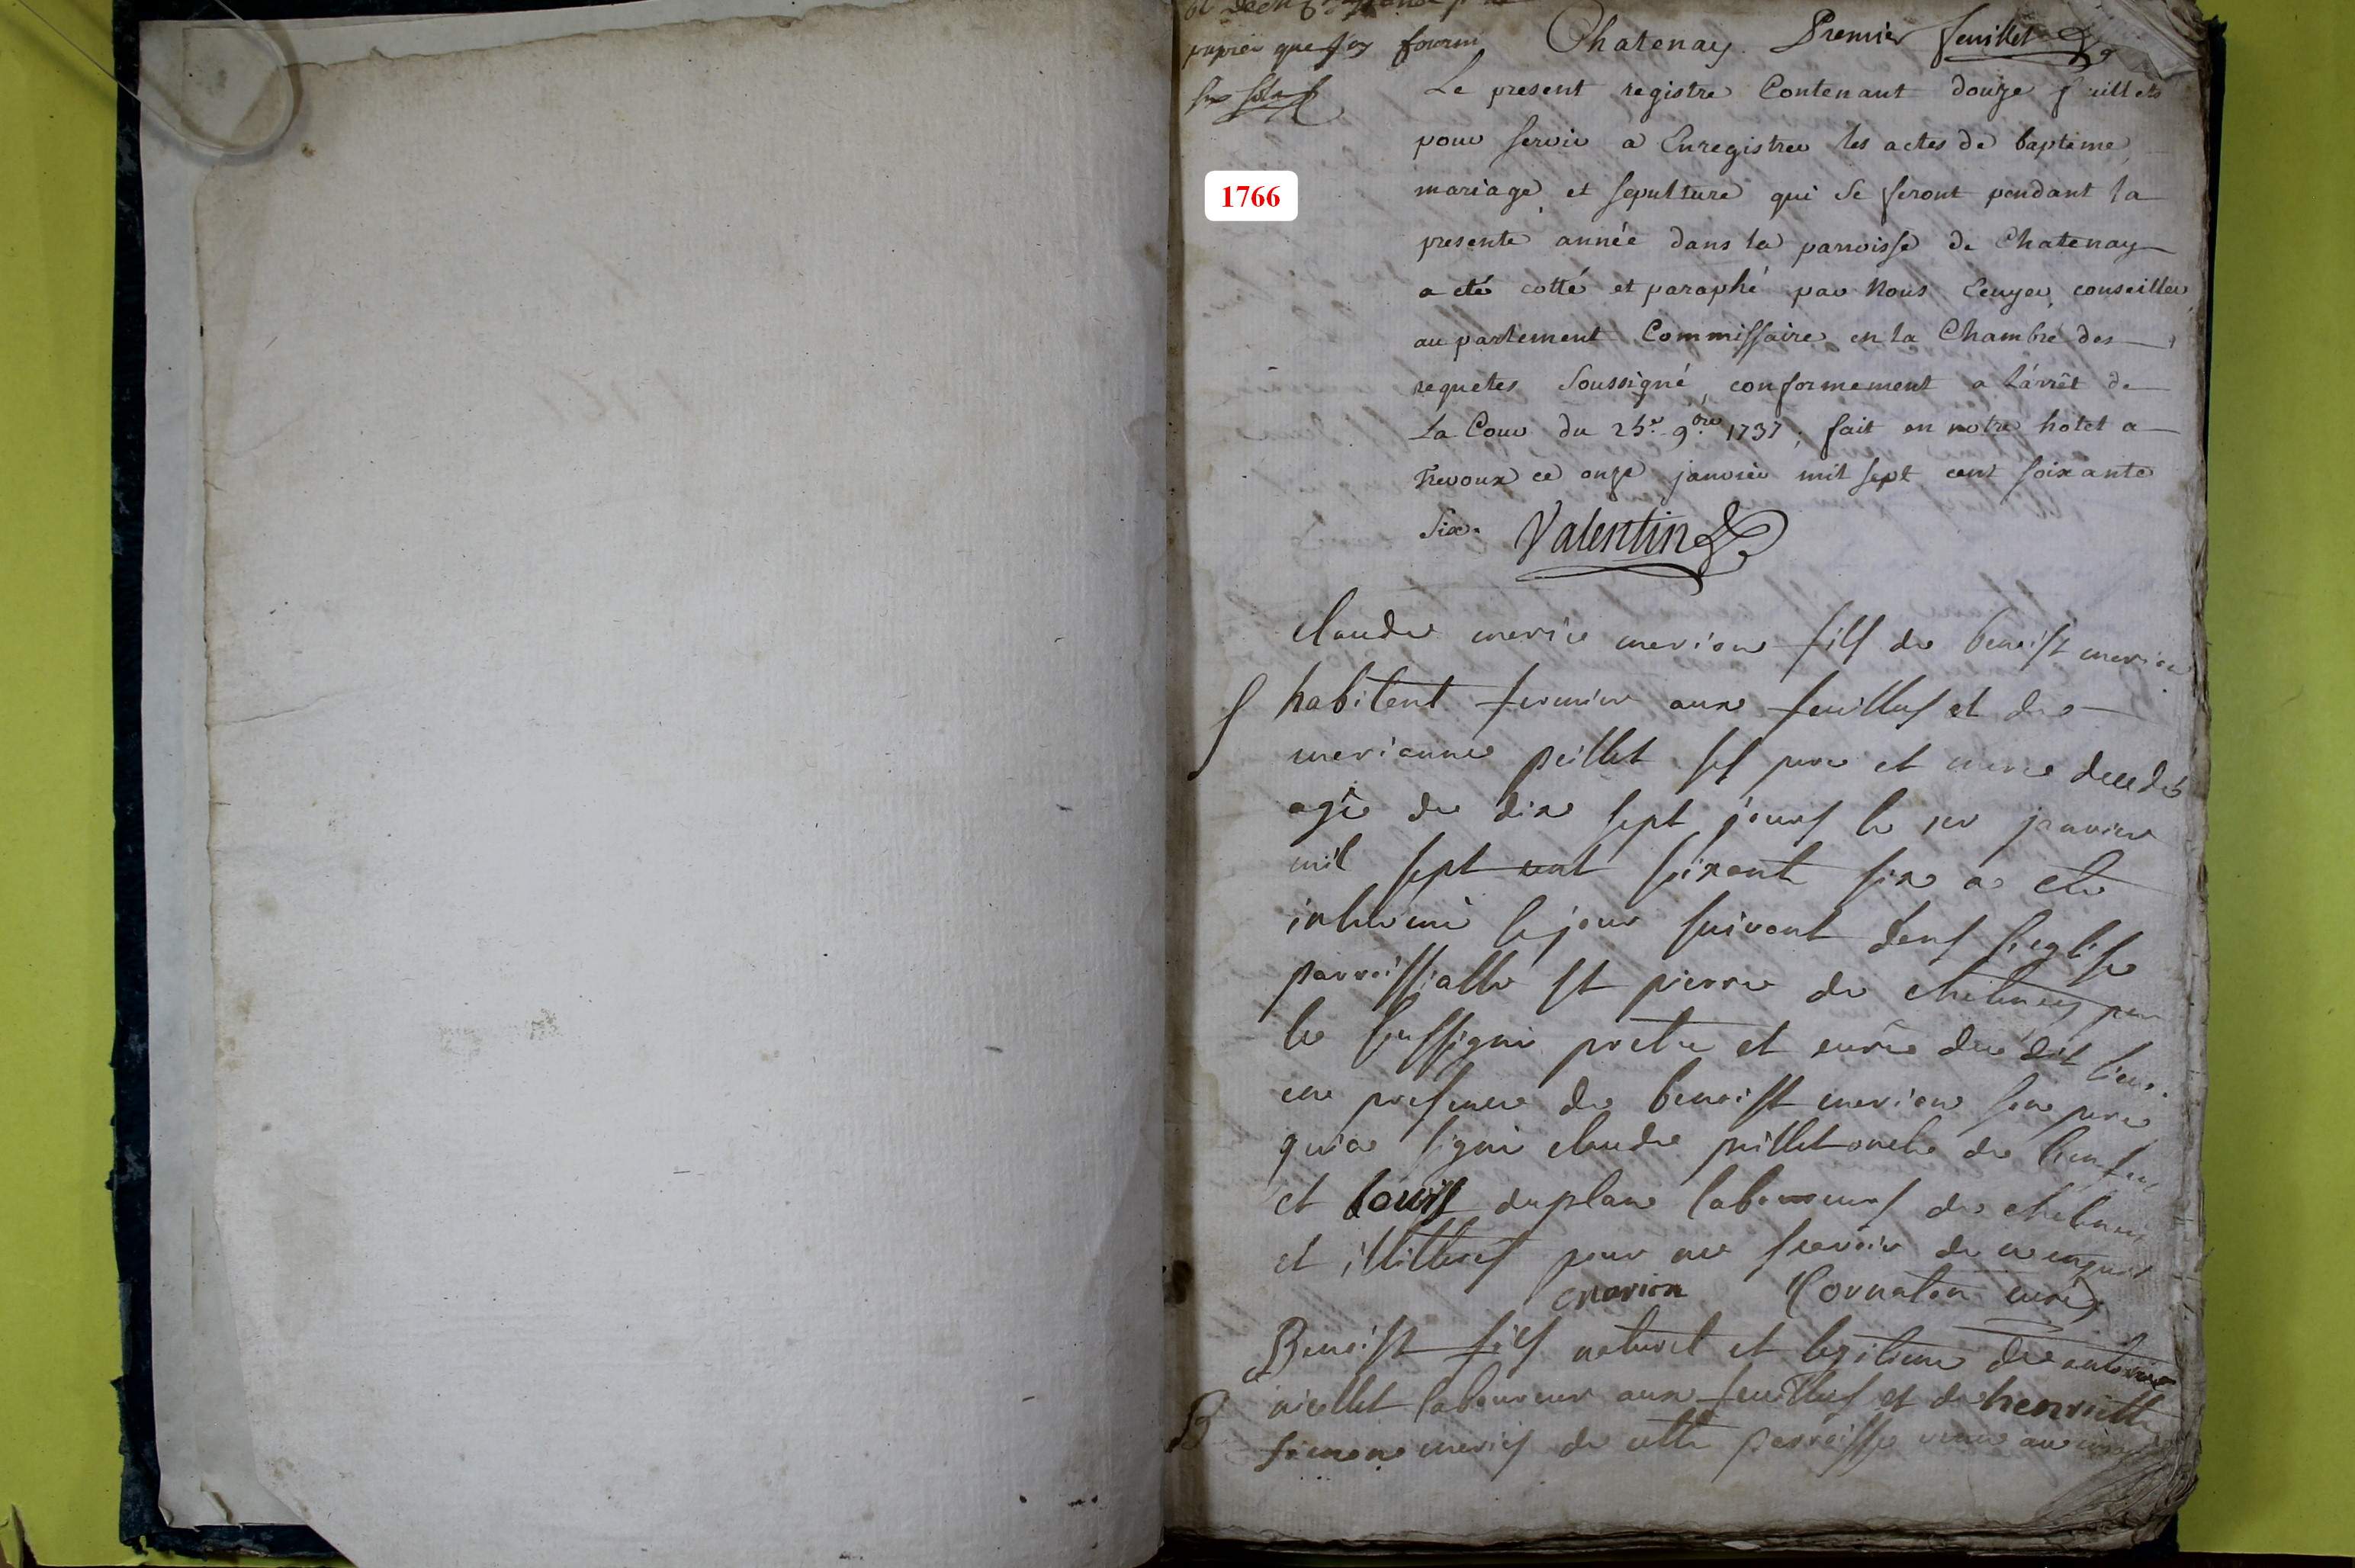 papier que j'ay fourni
six sols
Chatenay. Premier feuillet
1766
Le present registre Contenant douze feuillets
pour servir a Enregistrer les actes de baptême,
mariage, et sepulture qui se feront pendant la
presente année dans la parroisse de Chatenay
a été cotté et paraphé par Nous Ecuyer, conseiller
au parlement Commissaire en la Chambre des
requetes soussigné, conformement a l'arrêt de
La Cour du 25e 9bre 1737; fait en notre hôtel a
Trevoux ce onze janvier mil sept cent soixante
six. Valentin
Claude marie marion fils de benoist marion
S habitant fermier aux feuillus et de
marianne peillet ses pere et mere decedé
agé de dix sept jours le 1er janvier
mil sept cent soixante six a eté
inhumé le jour suivant dans l'eglise
parroissialle st pierre de chatenay par
le soussigné pretre et curé du dit lieu
en presence de benoist marion son pere
qui a signé claude peillet oncle de l'enfant
et louis duplan laboureurs de chatenay
et illitteres pour ne scavoir de ce enquis
marion Cornaton curé
Benoist fils naturel et legitime de antoine
B niollet laboureur aux feuillus et de henriette
simon mariés de cette parroisse